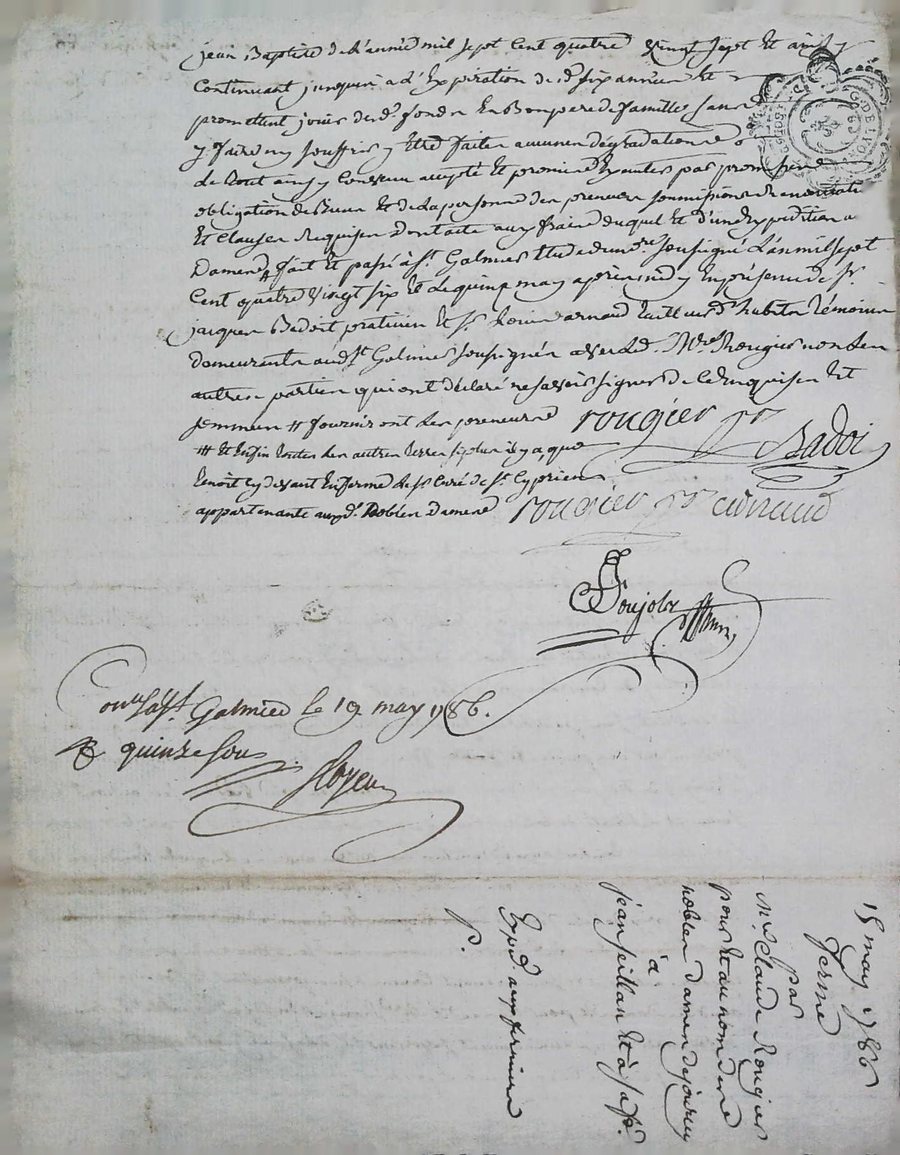 jean Baptiste de l'année mil sept cent quatre vingt sept Et ainsy
Continuant jusques a l'Expiration de de. six années Et
promettent jouir des ds. fonds En Bon pere de famille sans
y faire ny souffrir y Etre faites aucunes dégradations
de tout ainsy Convenu accepté Et promis Exsauter par promesse
obligation de Biens Et de la personne des preneurs soumissions Renonciations
Et Clauses Requises dont acte aux frais duquel Et d'une Expedition a
Dames # fait Et passé à St. Galmier Etude du nre. soussigné L'an mil sept
Cent quatre vingt six Et le quinze may apres midy En présence de Sr.
jacques Badoit praticien Et Sr. Louis arnaud tailleur d'habits témoins
demeurants aud. St Galmier soussignés avec led. Mre. Rougier non les
autres parties qui ont déclaré ne savoir signer de ce Enquises Et
# fourniront les preneurs
Et Enfin toutes les autres terres qu'il y a que
Benoit cy devant En ferme de Sr. Curé de St. Cyprien
appartenante auxd. Nobles dames
rougier ptr
Badoi
rougier ptr arnaud
Poujols
Conlé à St. Galmier le 19 may 1786.
R quinze sous
Royeu
15 may 1786
ferme
par
Mre. Claude Rougier
pour Et au nom de ne
nobles dames de jourcey
à
jean seillan Et à sa fe.
Expd. aux fermiers
P.